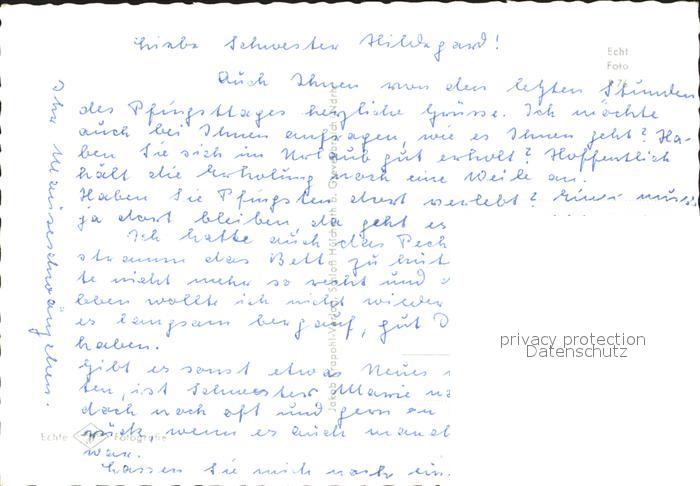 Liebe Schwester Hildegard!
Auch Ihnen von den letzten Stunden
des Pfingsttages herzliche Grüsse. Ich möchte
auch bei Ihnen anfragen, wie es Ihnen geht? Ha-
ben Sie sich im Urlaub gut erholt? Hoffentlich
hält die Erholung noch eine Weile an.
Haben Sie Pfingsten dort verlebt?
ja dort bleiben, da geht es
Ich hatte auch das Pech
stramm das Bett zu hüt
te nicht mehr so recht und
wollte ich nicht wieder
es langsam bergauf, gut
haben.
Gibt es sonst etwas Neues
ten, ist Schwester Marie
doch noch oft und gern an
rück, wenn es auch manch
war.
Lassen Sie mich noch ein
Ihr Mauseschwänzchen.
Echt
Foto
Echte Fotografie
privacy protection
Datenschutz